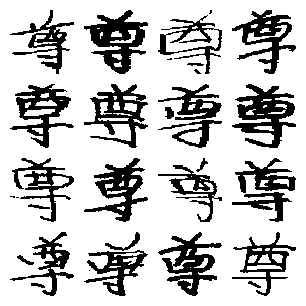 尊尊尊尊
尊尊尊尊
尊尊尊尊
尊尊尊尊